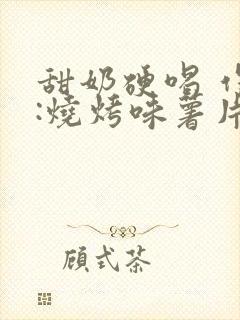 甜奶硬唱
:燒烤味薯片
顧式茶